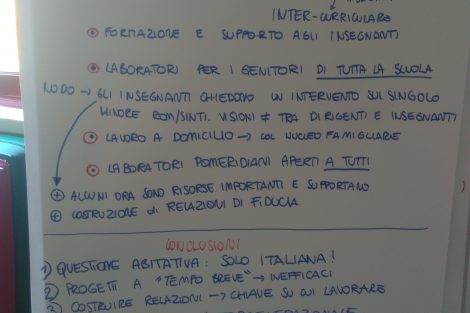 INTER-CURRICULARE
FORMAZIONE E SUPPORTO AGLI INSEGNANTI
LABORATORI PER I GENITORI DI TUTTA LA SCUOLA
NODO → GLI INSEGNANTI CHIEDONO UN INTERVENTO SUL SINGOLO
MINORE ROM/SINTI. VISIONI ≠ TRA DIRIGENTI E INSEGNANTI
LAVORO A DOMICILIO → COL NUCLEO FAMIGLIARE
LABORATORI POMERIDIANI APERTI A TUTTI
⊕ ALCUNI ORA SONO RISORSE IMPORTANTI E SUPPORTANO
⊕ COSTRUZIONE di RELAZIONI DI FIDUCIA
CONCLUSIONI
1) QUESTIONE ABITATIVA: SOLO ITALIANA!
2) PROGETTI A "TEMPO BREVE" → INEFFICACI
3 COSTRUIRE RELAZIONI → CHIAVE SU CUI LAVORARE